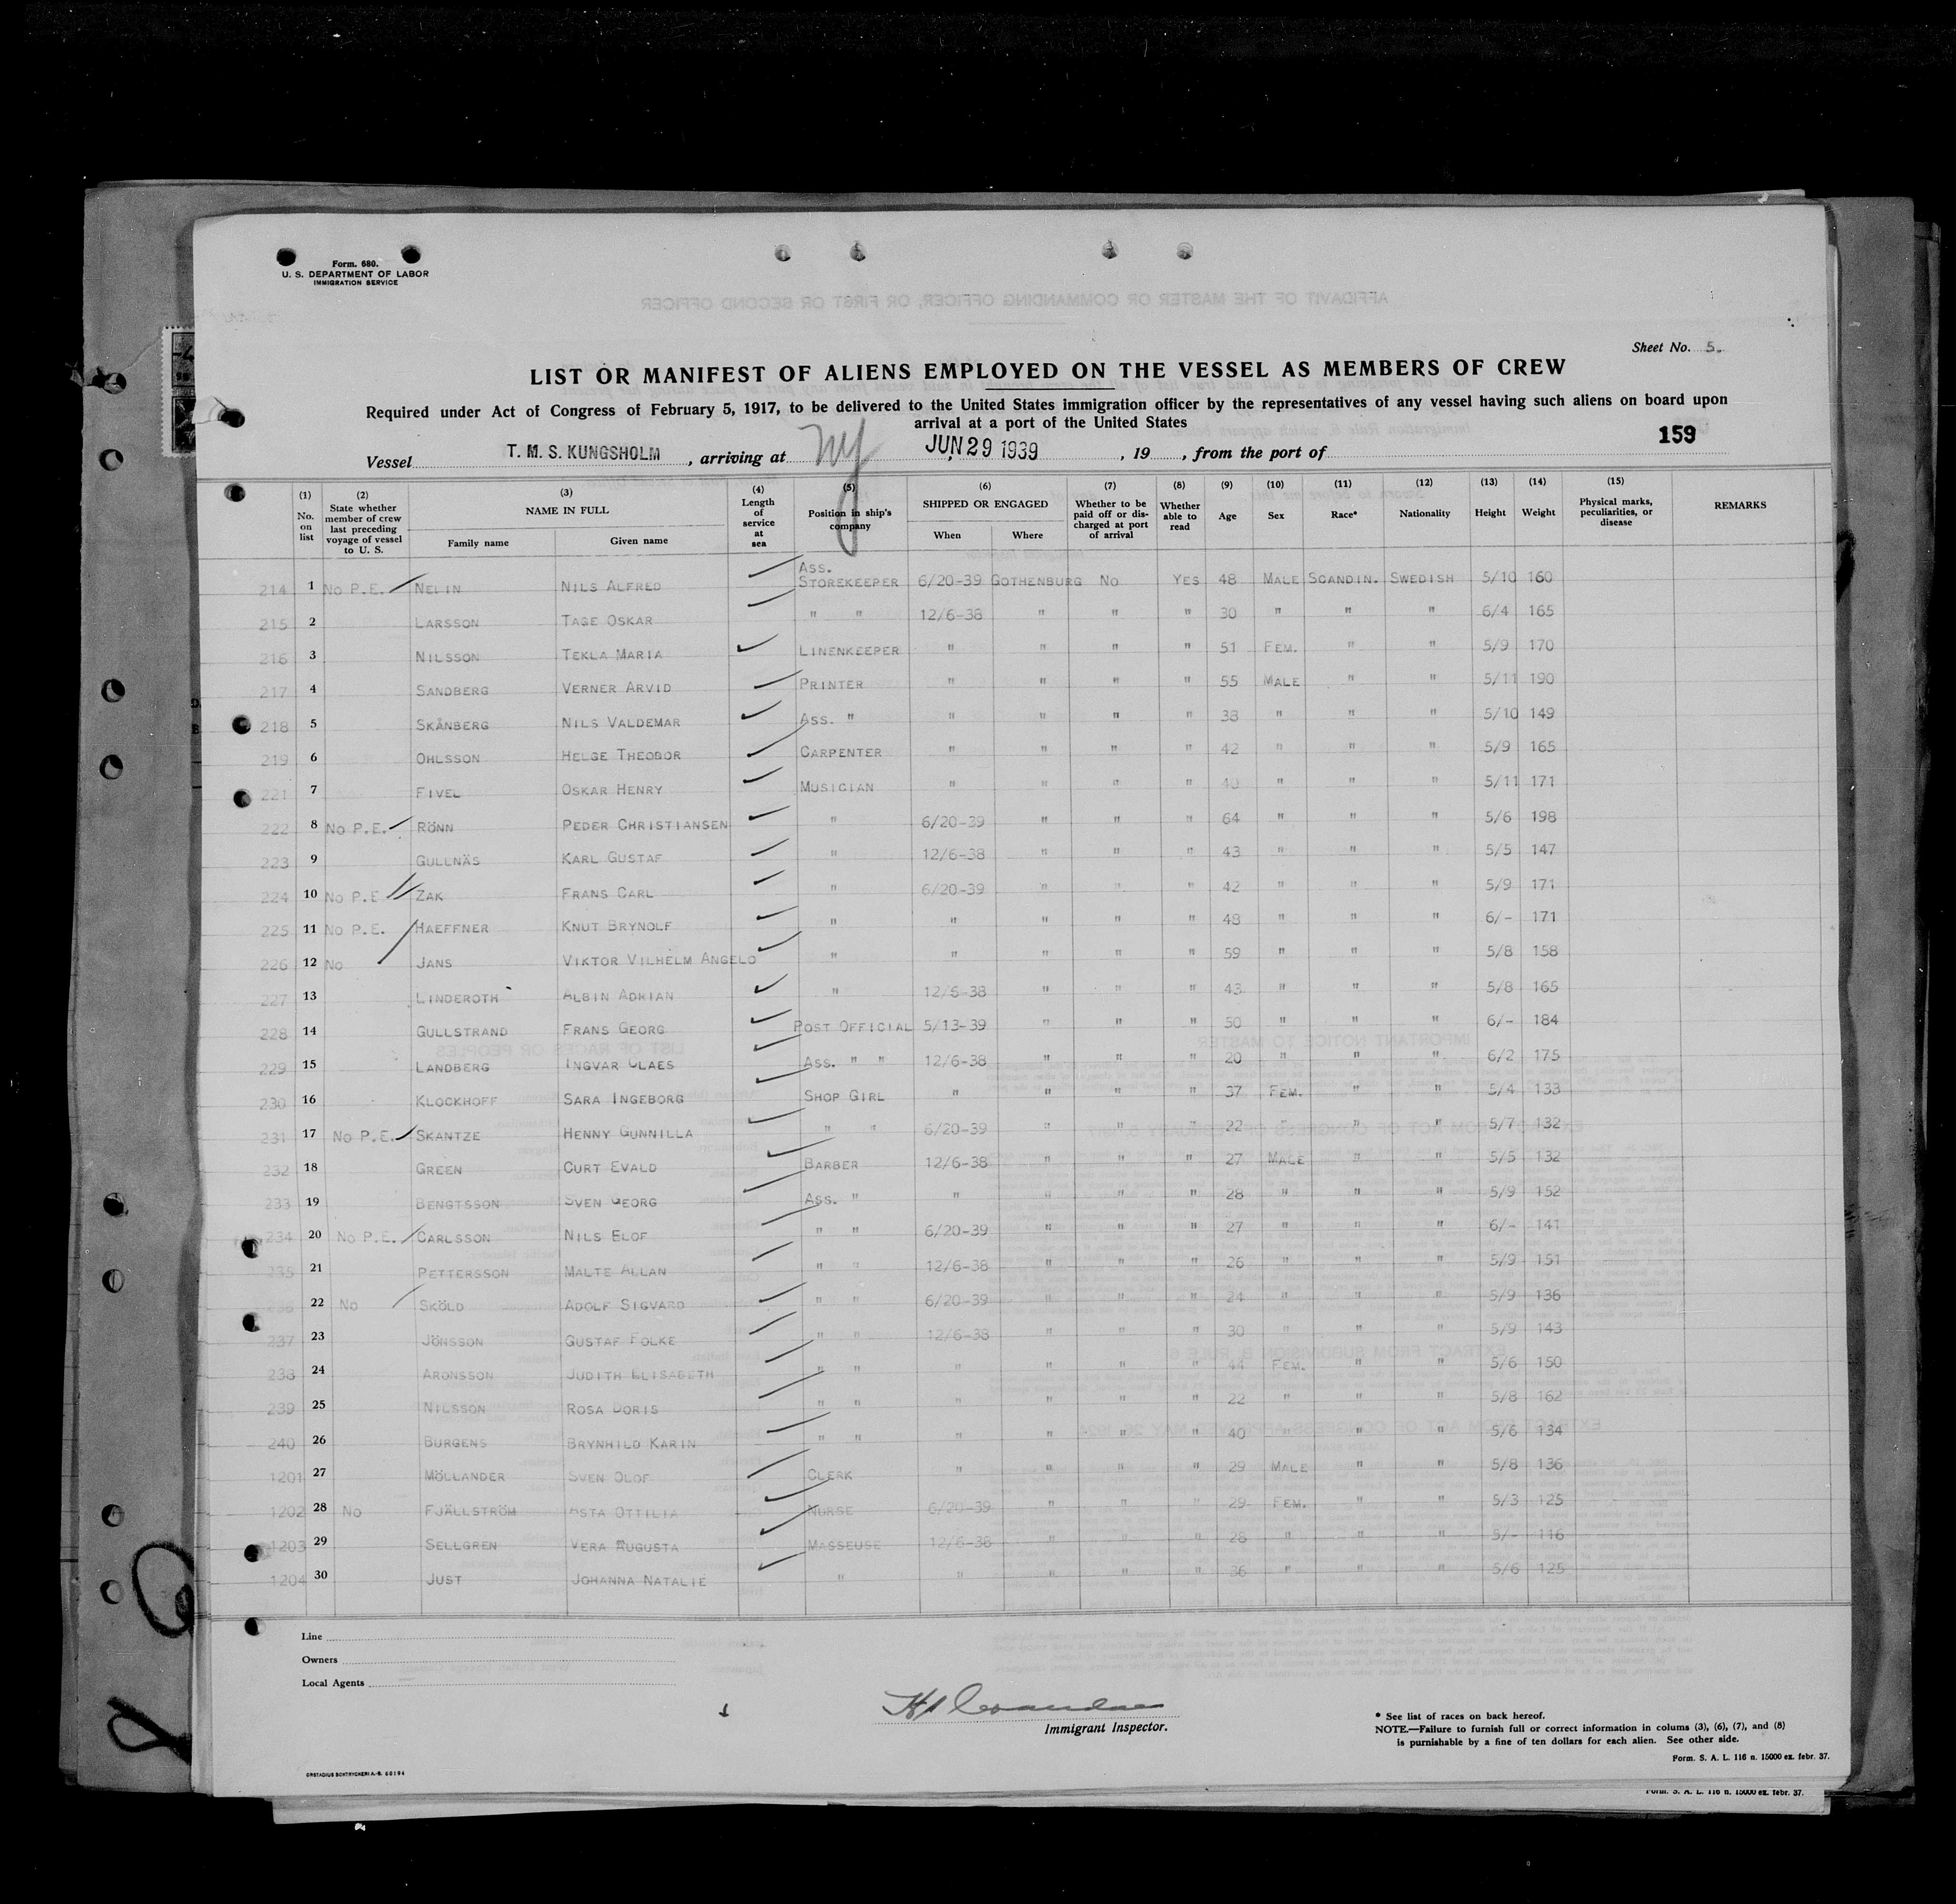 Form. 680.
U. S. DEPARTMENT OF LABOR
IMMIGRATION SERVICE
Sheet No. 5.
LIST OR MANIFEST OF ALIENS EMPLOYED ON THE VESSEL AS MEMBERS OF CREW
Required under Act of Congress of February 5, 1917, to be delivered to the United States immigration officer by the representatives of any vessel having such aliens on board upon
arrival at a port of the United States
159
Vessel T. M. S. KUNGSHOLM , arriving at NY JUN 29 1939 , 19 , from the port of
(1) No. on list (2) State whether member of crew last preceding voyage of vessel to U. S. (3) NAME IN FULL Family name Given name (4) Length of service at sea (5) Position in ship's company (6) SHIPPED OR ENGAGED When Where (7) Whether to be paid off or discharged at port of arrival (8) Whether able to read (9) Age (10) Sex (11) Race* (12) Nationality (13) Height (14) Weight (15) Physical marks, peculiarities, or disease REMARKS
214 1 No P.E. NELIN NILS ALFRED ASS. STOREKEEPER 6/20-39 GOTHENBURG NO YES 48 MALE SCANDIN. SWEDISH 5/10 160
215 2 LARSSON TAGE OSKAR " " 12/6-38 " " " 30 " " " 6/4 165
216 3 NILSSON TEKLA MARIA LINENKEEPER " " " " 51 FEM. " " 5/9 170
217 4 SANDBERG VERNER ARVID PRINTER " " " " 55 MALE " " 5/11 190
218 5 SKÅNBERG NILS VALDEMAR ASS. " " " " " 38 " " " 5/10 149
219 6 OHLSSON HELGE THEODOR CARPENTER " " " " 42 " " " 5/9 165
221 7 FIVEL OSKAR HENRY MUSICIAN " " " " 40 " " " 5/11 171
222 8 No P.E. RÖNN PEDER CHRISTIANSEN " 6/20-39 " " " 64 " " " 5/6 198
223 9 GULLNÄS KARL GUSTAF " 12/6-38 " " " 43 " " " 5/5 147
224 10 No P.E ZAK FRANS CARL " 6/20-39 " " " 42 " " " 5/9 171
225 11 No P.E. HAEFFNER KNUT BRYNOLF " " " " " 48 " " " 6/- 171
226 12 No JANS VIKTOR VILHELM ANGELO " " " " " 59 " " " 5/8 158
227 13 LINDEROTH ALBIN ADRIAN " 12/6-38 " " " 43 " " " 5/8 165
228 14 GULLSTRAND FRANS GEORG POST OFFICIAL 5/13-39 " " " 50 " " " 6/- 184
229 15 LANDBERG INGVAR CLAES ASS. " " 12/6-38 " " " 20 " " " 6/2 175
230 16 KLOCKHOFF SARA INGEBORG SHOP GIRL " " " " 37 FEM. " " 5/4 133
231 17 No P.E. SKANTZE HENNY GUNNILLA " " 6/20-39 " " " 22 " " " 5/7 132
232 18 GREEN CURT EVALD BARBER 12/6-38 " " " 27 MALE " " 5/5 132
233 19 BENGTSSON SVEN GEORG ASS. " " " " " 28 " " " 5/9 152
234 20 No P.E. CARLSSON NILS ELOF " " 6/20-39 " " " 27 " " " 6/- 141
235 21 PETTERSSON MALTE ALLAN " " 12/6-38 " " " 26 " " " 5/9 151
236 22 No SKÖLD ADOLF SIGVARD " " 6/20-39 " " " 24 " " " 5/9 136
237 23 JÖNSSON GUSTAF FOLKE " " 12/6-38 " " " 30 " " " 5/9 143
238 24 ARONSSON JUDITH ELISABETH " " " " " " 44 FEM. " " 5/6 150
239 25 NILSSON ROSA DORIS " " " " " " 22 " " " 5/8 162
240 26 BURGENS BRYNHILD KARIN " " " " " " 40 " " " 5/6 134
1201 27 MÖLLANDER SVEN OLOF CLERK " " " " 29 MALE " " 5/8 136
1202 28 No FJÄLLSTRÖM ASTA OTTILIA NURSE 6/20-39 " " " 29 FEM. " " 5/3 125
1203 29 SELLGREN VERA AUGUSTA MASSEUSE 12/6-38 " " " 28 " " " 5/- 116
1204 30 JUST JOHANNA NATALIE " " " " " 36 " " " 5/6 125
Line
Owners
Local Agents
Immigrant Inspector.
* See list of races on back hereof.
NOTE.—Failure to furnish full or correct information in colums (3), (6), (7), and (8)
is purnishable by a fine of ten dollars for each alien. See other side.
Form. S. A. L. 116 n. 15000 ex. febr. 37.
Form. S. A. L. 116 n. 15000 ex. febr. 37.